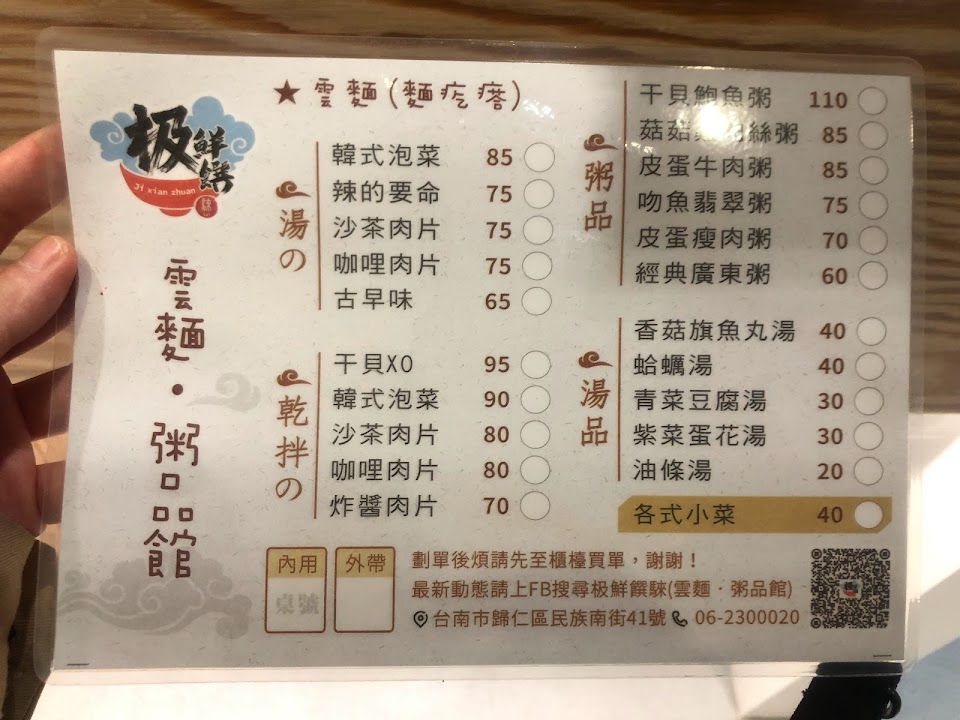 极鮮饌
Ji xian zhuan
雲麵・粥品館
★ 雲麵(麵疙瘩)
湯の
韓式泡菜 85
辣的要命 75
沙茶肉片 75
咖哩肉片 75
古早味 65
乾拌の
干貝XO 95
韓式泡菜 90
沙茶肉片 80
咖哩肉片 80
炸醬肉片 70
粥品
干貝鮑魚粥 110
菇菇 絲粥 85
皮蛋牛肉粥 85
吻魚翡翠粥 75
皮蛋瘦肉粥 70
經典廣東粥 60
湯品
香菇旗魚丸湯 40
蛤蠣湯 40
青菜豆腐湯 30
紫菜蛋花湯 30
油條湯 20
各式小菜 40
內用 外帶
桌號
劃單後煩請先至櫃檯買單，謝謝！
最新動態請上FB搜尋极鮮饌駷(雲麵・粥品館)
台南市歸仁區民族南街41號 06-2300020